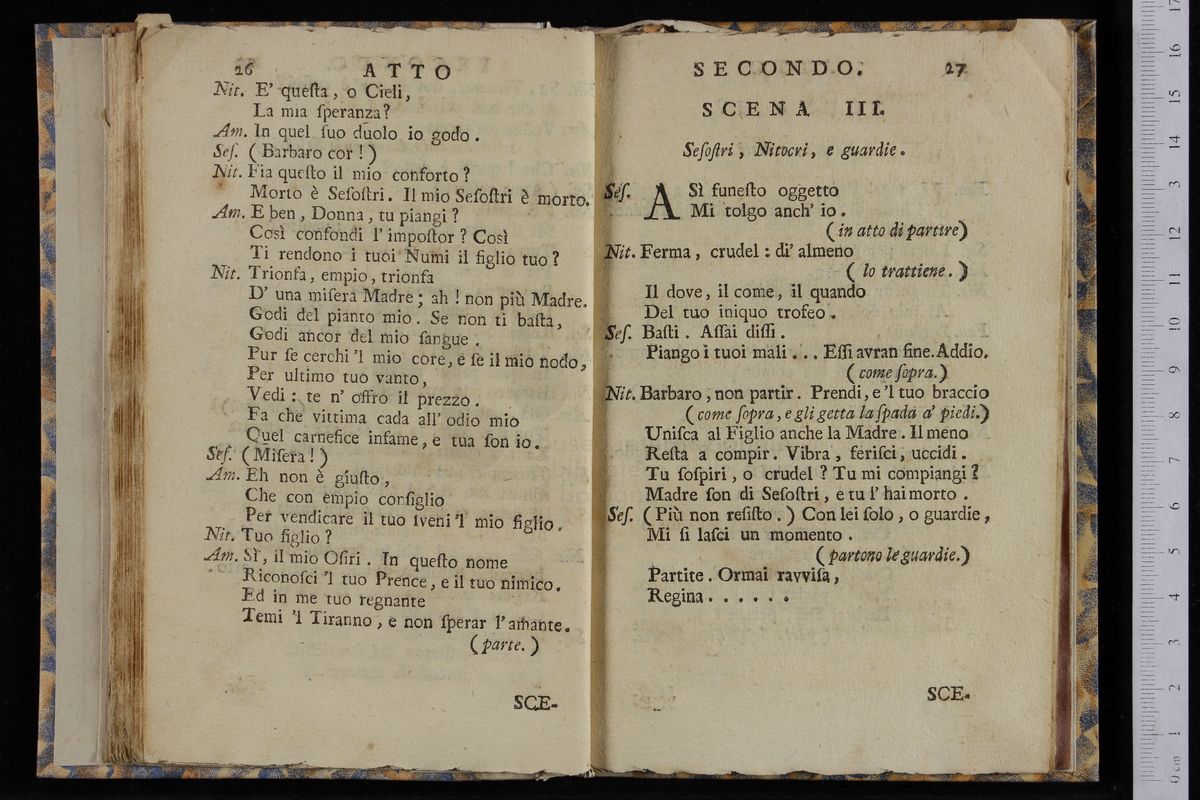 26 ATTO
Nit. E' queſta, o Cieli,
La mia ſperanza?
Am. In quel ſuo duolo io godo.
Seſ. (Barbaro cor!)
Nit. Fia queſto il mio conforto?
Morto è Seſoſtri. Il mio Seſoſtri è morto.
Am. E ben, Donna, tu piangi?
Così confondi l' impoſtor? Così
Ti rendono i tuoi Numi il figlio tuo?
Nit. Trionfa, empio, trionfa
D' una miſera Madre; ah! non più Madre.
Godi del pianto mio. Se non ti baſta,
Godi ancor del mio ſangue.
Pur ſe cerchi 'l mio core, e ſe il mio nodo,
Per ultimo tuo vanto,
Vedi: te n' offro il prezzo.
Fa che vittima cada all' odio mio
Quel carnefice infame, e tua ſon io.
Seſ. (Miſera!)
Am. Eh non è giuſto,
Che con empio conſiglio
Per vendicare il tuo ſveni 'l mio figlio.
Nit. Tuo figlio?
Am. Sì, il mio Oſiri. In queſto nome
Riconoſci 'l tuo Prence, e il tuo nimico.
Ed in me tuo regnante
Temi 'l Tiranno, e non ſperar l' amante.
(parte.)
SCE-
SECONDO. 27
SCENA III.
Seſoſtri, Nitocri, e guardie.
Seſ. A Sì funeſto oggetto
Mi tolgo anch' io.
(in atto di partire)
Nit. Ferma, crudel: di' almeno
(lo trattiene.)
Il dove, il come, il quando
Del tuo iniquo trofeo.
Seſ. Baſti. Aſſai diſſi.
Piango i tuoi mali... Eſſi avran fine. Addio.
(come ſopra.)
Nit. Barbaro, non partir. Prendi, e 'l tuo braccio
(come ſopra, e gli getta la ſpada a' piedi.)
Uniſca al Figlio anche la Madre. Il meno
Reſta a compir. Vibra, feriſci, uccidi.
Tu ſoſpiri, o crudel? Tu mi compiangi?
Madre ſon di Seſoſtri, e tu l' hai morto.
Seſ. (Più non reſiſto.) Con lei ſolo, o guardie,
Mi ſi laſci un momento.
(partono le guardie.)
Partite. Ormai ravviſa,
Regina......
SCE-